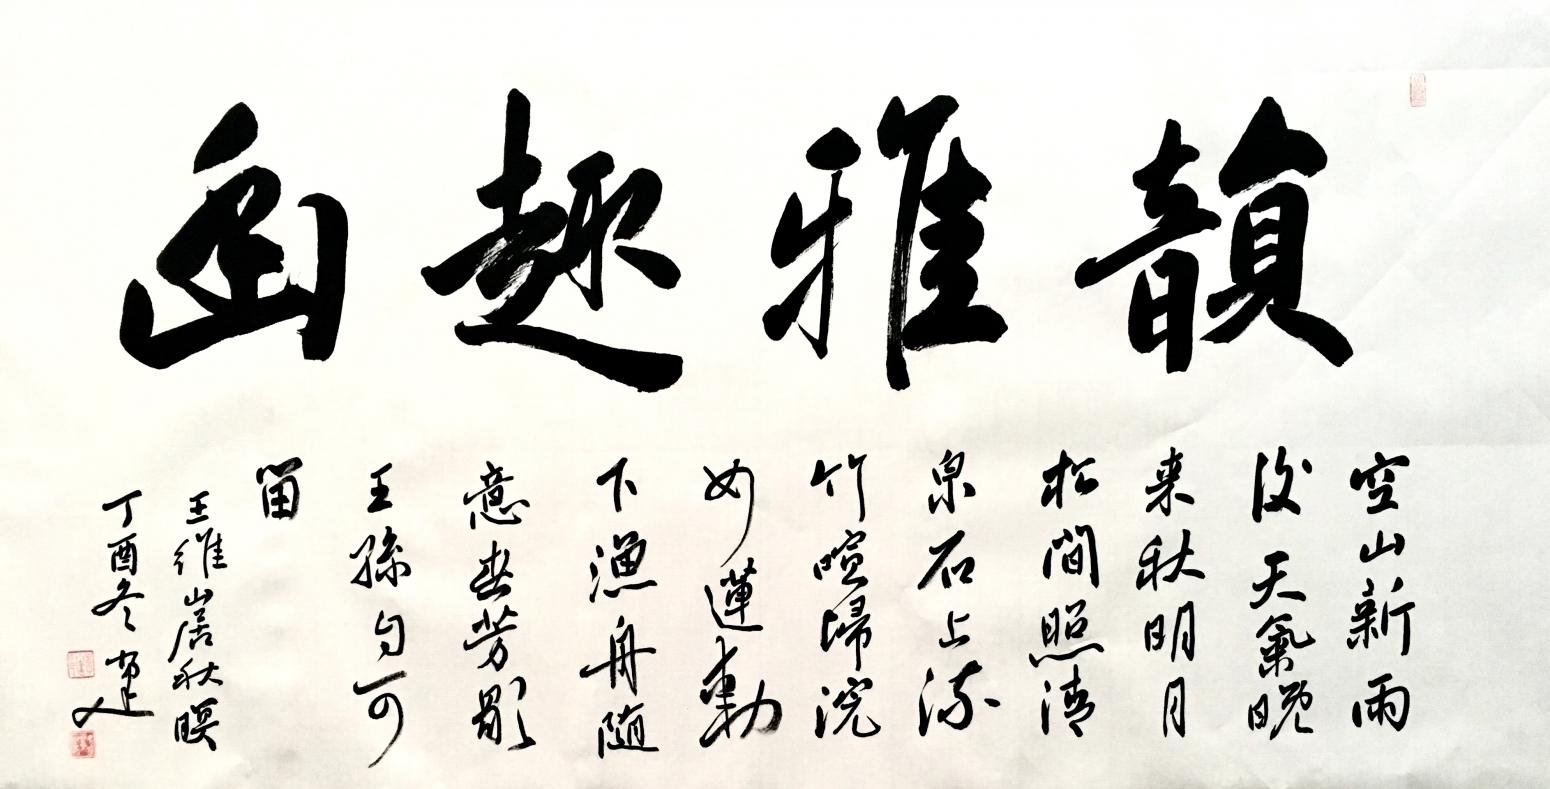 韻雅趣幽
空山新雨
後天氣晚
来秋明月
松間照清
泉石上流
竹喧歸浣
女蓮動
下漁舟随
意春芳歇
王孫自可
留
王維山居秋暝
丁酉冬